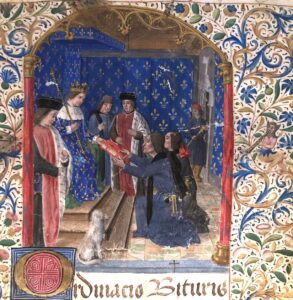 Ordinacio Bituris